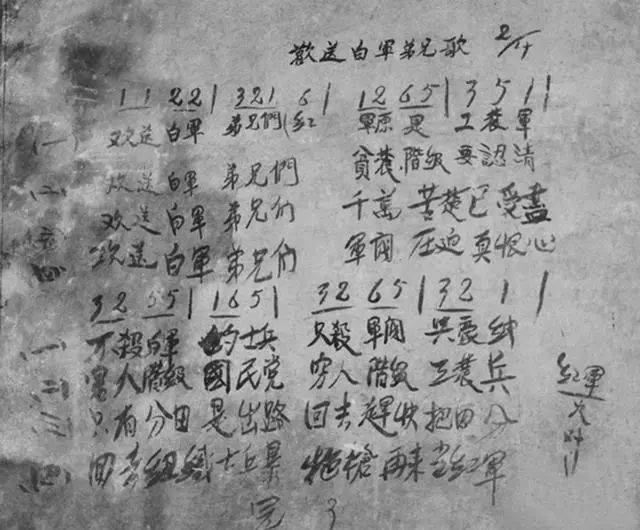 歡送白軍弟兄歌 2/4
1 1 2 2 | 3 2 1 6 | 1 2 6 5 | 3 5 1 |
(一) 欢送 白軍 弟兄們 (紅 軍原是 工農軍
(二) 欢送 白軍 弟兄們 貧農階級 要認清
欢送 白軍 弟兄们 千萬 苦楚已受盡
(四) 欢送 白軍 弟兄们 軍閥 压迫真恨心
3 2 5 5 | 1 6 5 | 3 2 6 5 | 3 2 1 |
(一) 不殺白軍 的士兵 只殺 軍閥 與豪紳
(二) 人階級 國民党 窮人 階級 工農兵
(三) 只有分田 是出路 回去趕快把田分
(四) 回去組織士兵暴 拖槍再來当紅軍
紅軍
完